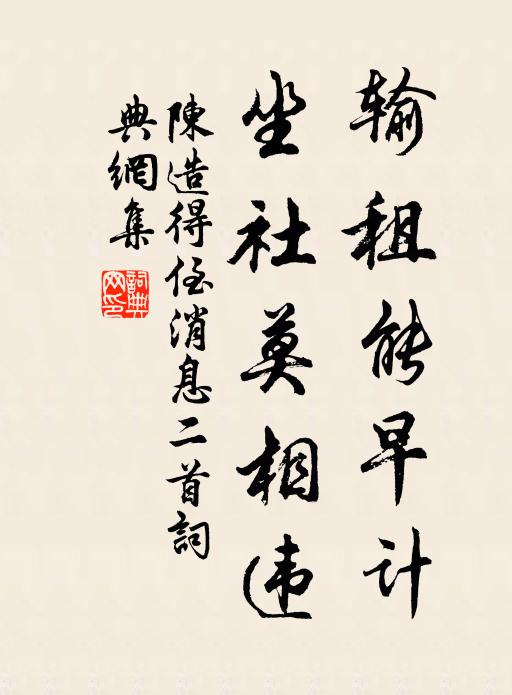 输租能早计
坐社莫相违
陳造得侄消息二首詞
典網集
詞典网印